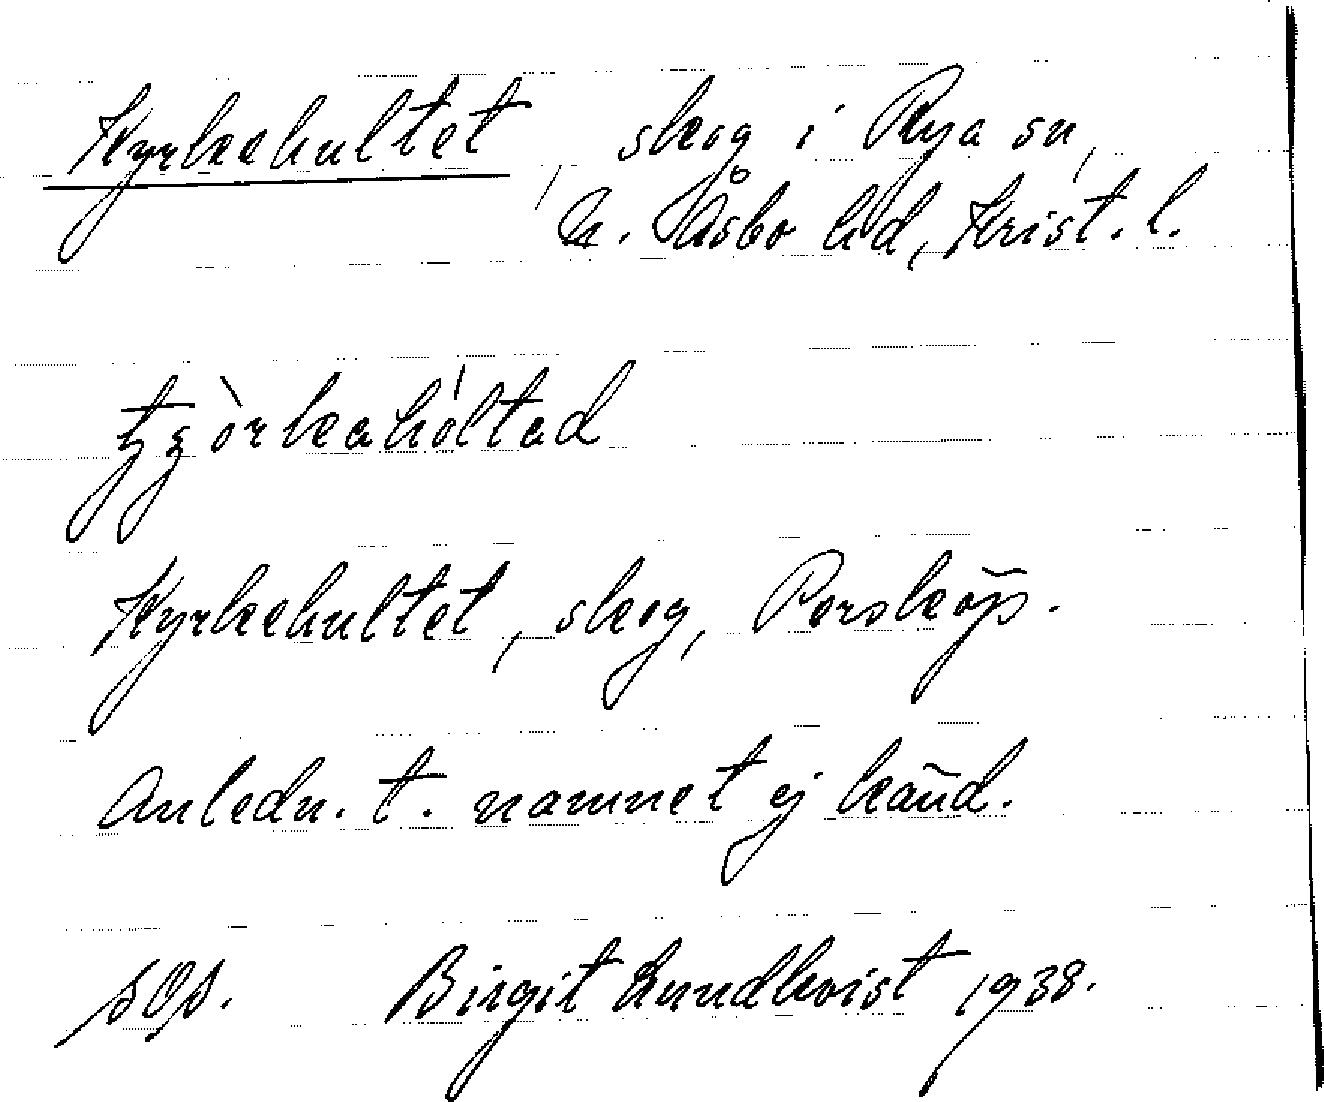 Kyrkehultet, skog i Rya sn,
N. Åsbo hd, Krist. l.
Kyrkehultet, skog, Persköp.
Anledn. t. namnet ej känd.
Birgit Lundkvist 1938.